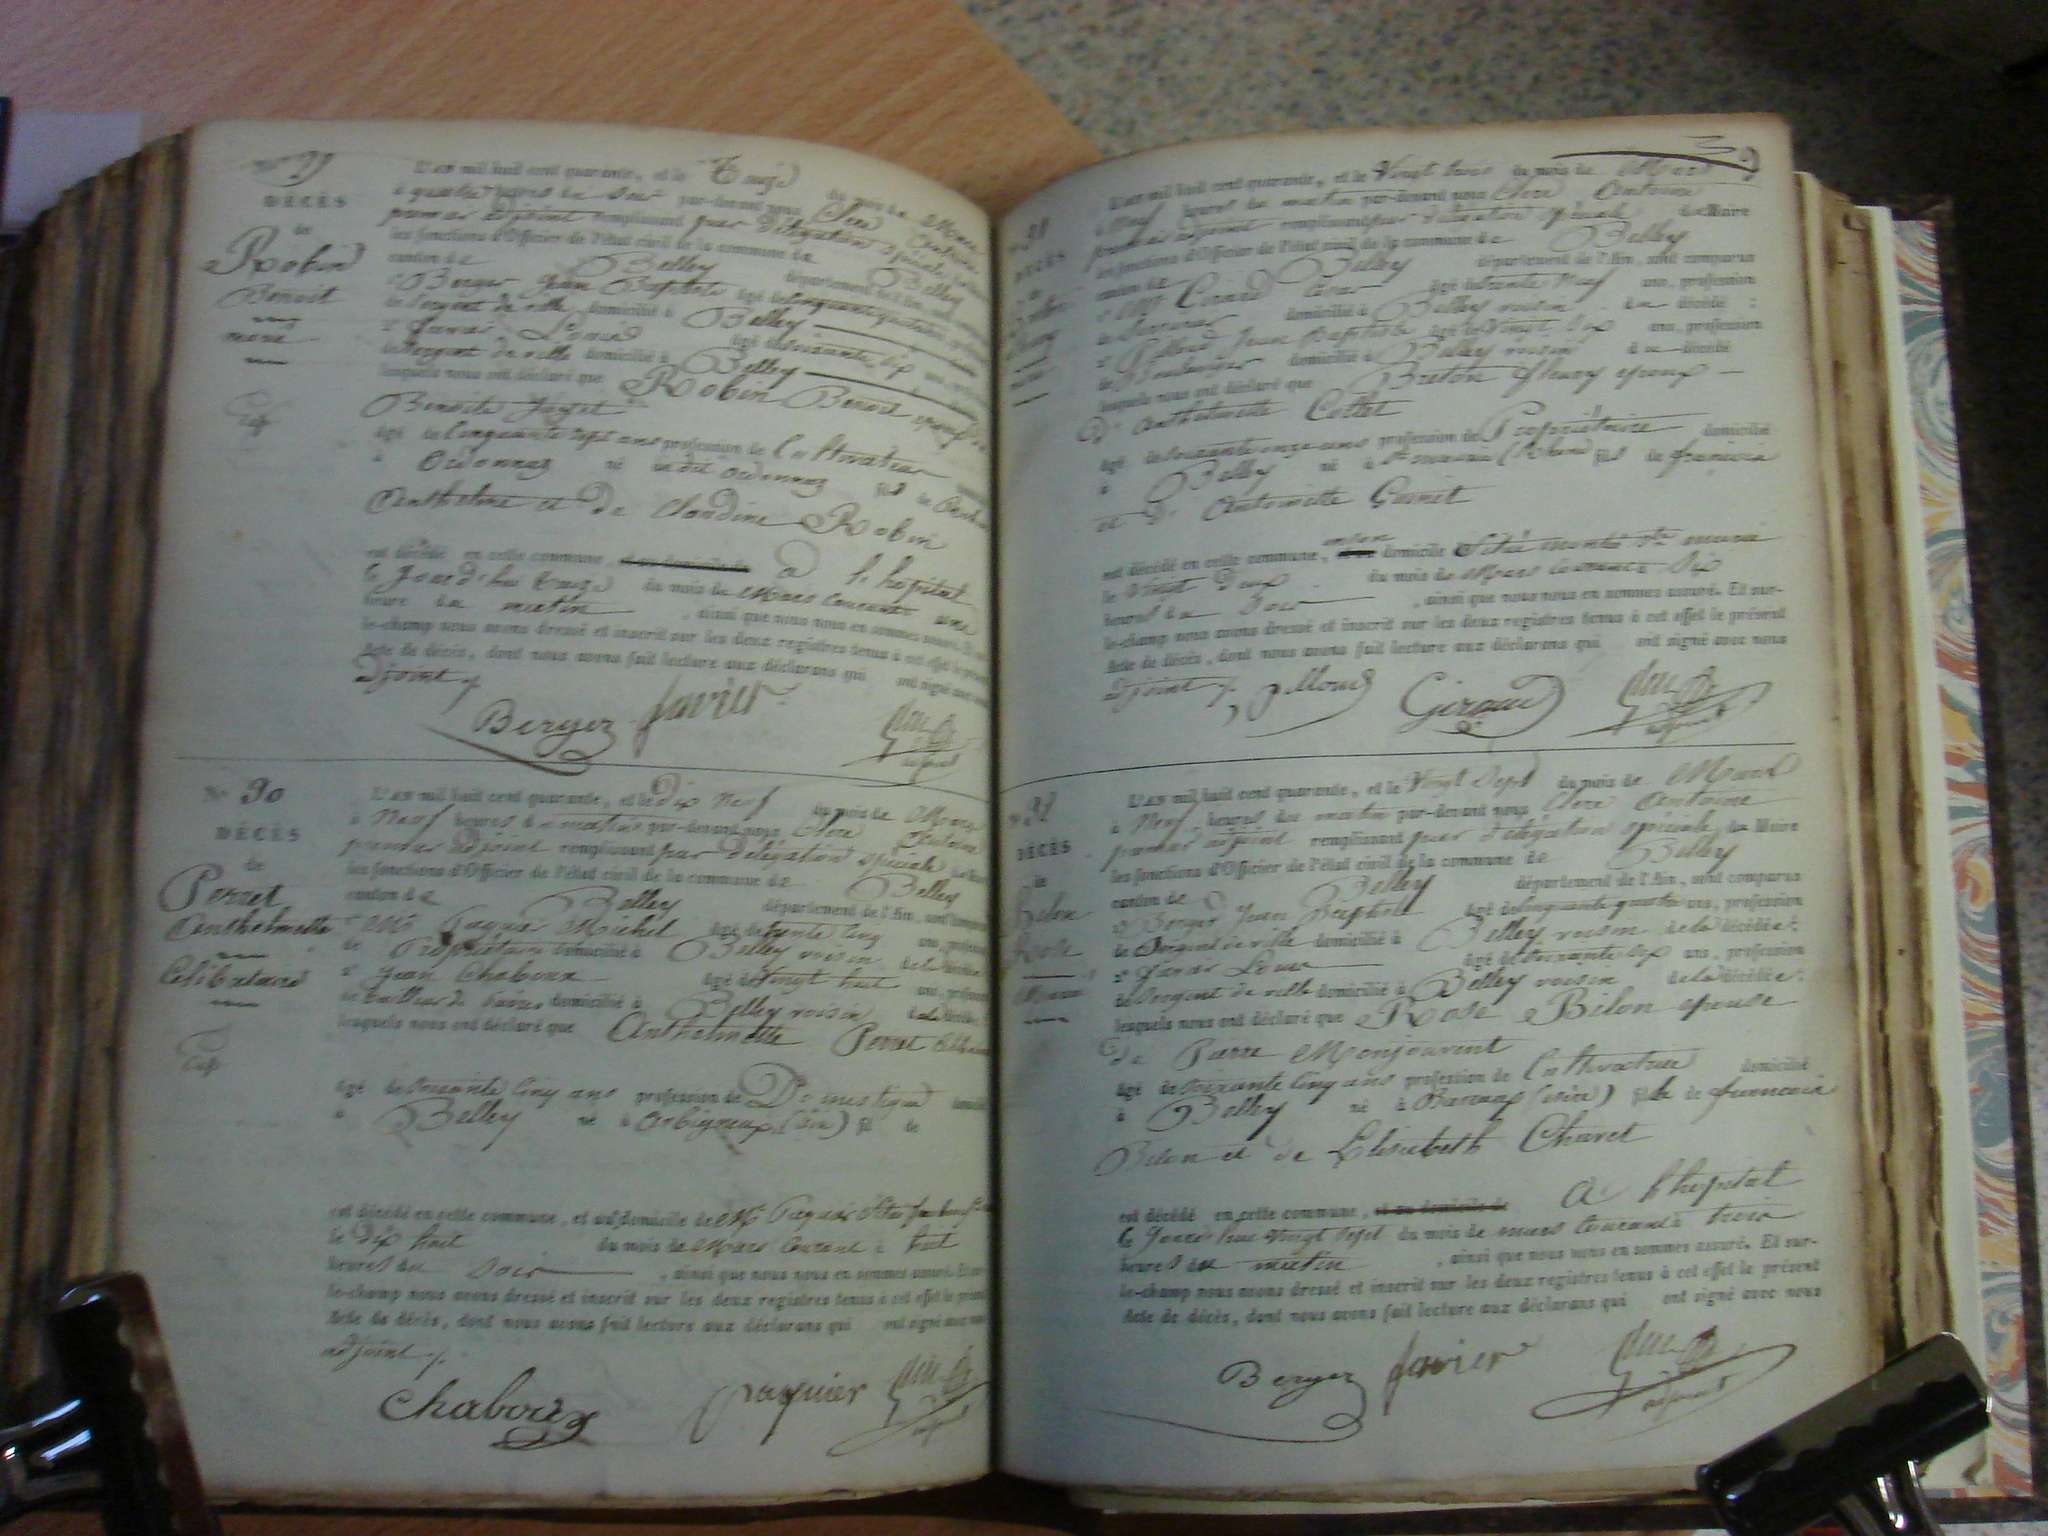 N° 29
DÉCÈS
de
Robin
Benoit
marié
L'AN mil huit cent quarante, et le Treize du mois de Mars
à quatre heures du soir par-devant nous Clerc Antoine
premier adjoint remplissant par délégation spéciale
les fonctions d'Officier de l'état civil de la commune de Belley
canton de Belley département de l'Ain,
1° Berger Jean Baptiste âgé de cinquante quatre
de Sergent de ville domicilié à Belley
2° Janvier Louis âgé de soixante six
de Sergent de ville domicilié à Belley
lesquels nous ont déclaré que Robin Benoit époux de
Benoite Juget
âgé de Cinquante sept ans profession de Cultivateur
à Ordonnaz né au dit Ordonnaz fils de
Anthelme et de Claudine Robin
est décédé en cette commune, à l'hopital
le Jourd'hui treize du mois de Mars courant à une
heure du matin, ainsi que nous nous en sommes assuré.
le-champ nous avons dressé et inscrit sur les deux registres tenus à cet effet le présent
Acte de décès, dont nous avons fait lecture aux déclarans qui ont signé avec nous
adjoint
Berger Janvier Clerc adjoint
N° 30
DÉCÈS
de
Perret
Anthelmette
Célibataire
L'AN mil huit cent quarante, et le Dix Neuf du mois de Mars
à Neuf heures du matin par-devant nous Clerc Antoine
premier adjoint remplissant par délégation spéciale
les fonctions d'Officier de l'état civil de la commune de Belley
canton de Belley département de l'Ain, sont comparus
1° Paquier Michel âgé de trente cinq ans,
de Propriétaire domicilié à Belley voisin de la
2° Jean Chaboux âgé de vingt huit ans,
de tailleur de pierre domicilié à Belley voisin de la
lesquels nous ont déclaré que Anthelmette Perret
âgé de soixante Cinq ans profession de Domestique
à Belley né à Arbignieux (Ain) fil de
est décédé en cette commune, et au domicile de Mr Paquier
le dix huit du mois de Mars courant à huit
heures du soir, ainsi que nous nous en sommes assuré. Et sur-
le-champ nous avons dressé et inscrit sur les deux registres tenus à cet effet le présent
Acte de décès, dont nous avons fait lecture aux déclarans qui ont signé avec nous
adjoint
Chaboux Paquier Clerc adjoint
31
DÉCÈS
de
L'AN mil huit cent quarante, et le Vingt trois du mois de Mars
à Neuf heures du matin par-devant nous Clerc Antoine
premier adjoint remplissant par délégation spéciale du Maire
les fonctions d'Officier de l'état civil de la commune de Belley
canton de Belley département de l'Ain, sont comparus
âgé de trente Neuf ans, profession
de Serrurier domicilié à Belley voisin du décédé :
2° Jean Baptiste âgé de Vingt Six ans, profession
de Boulanger domicilié à Belley voisin du décédé
lesquels nous ont déclaré que Breton fleury époux
de Anthelmette Collet
âgé de soixante onze ans profession de Propriétaire domicilié
à Belley né à (Rhône) fils de francois
et de Antoinette Guinet
est décédé en cette commune, en son domicile
le Vingt Deux du mois de Mars courant à Six
heures du soir, ainsi que nous nous en sommes assuré. Et sur-
le-champ nous avons dressé et inscrit sur les deux registres tenus à cet effet le présent
Acte de décès, dont nous avons fait lecture aux déclarans qui ont signé avec nous
adjoint
Giraud Clerc adjoint
32
DÉCÈS
de
Bilon
Rose
L'AN mil huit cent quarante, et le Vingt Sept du mois de Mars
à Neuf heures du matin par-devant nous Clerc Antoine
premier adjoint remplissant par délégation spéciale du Maire
les fonctions d'Officier de l'état civil de la commune de Belley
canton de Belley département de l'Ain, sont comparus
1° Berger Jean Baptiste âgé de cinquante quatre ans, profession
de Sergent de ville domicilié à Belley voisin de la décédée :
2° Janvier Louis âgé de soixante six ans, profession
de Sergent de ville domicilié à Belley voisin de la décédée :
lesquels nous ont déclaré que Rose Bilon épouse
de Pierre Monjouvent
âgé de soixante Cinq ans profession de Cultivatrice domicilié
à Belley né à (isère) fille de francois
Bilon et de Elisabeth Charet
est décédé en cette commune, à l'hopital
le Jourd'hui Vingt sept du mois de mars courant à trois
heures du matin, ainsi que nous nous en sommes assuré. Et sur-
le-champ nous avons dressé et inscrit sur les deux registres tenus à cet effet le présent
Acte de décès, dont nous avons fait lecture aux déclarans qui ont signé avec nous
Berger Janvier Clerc adjoint